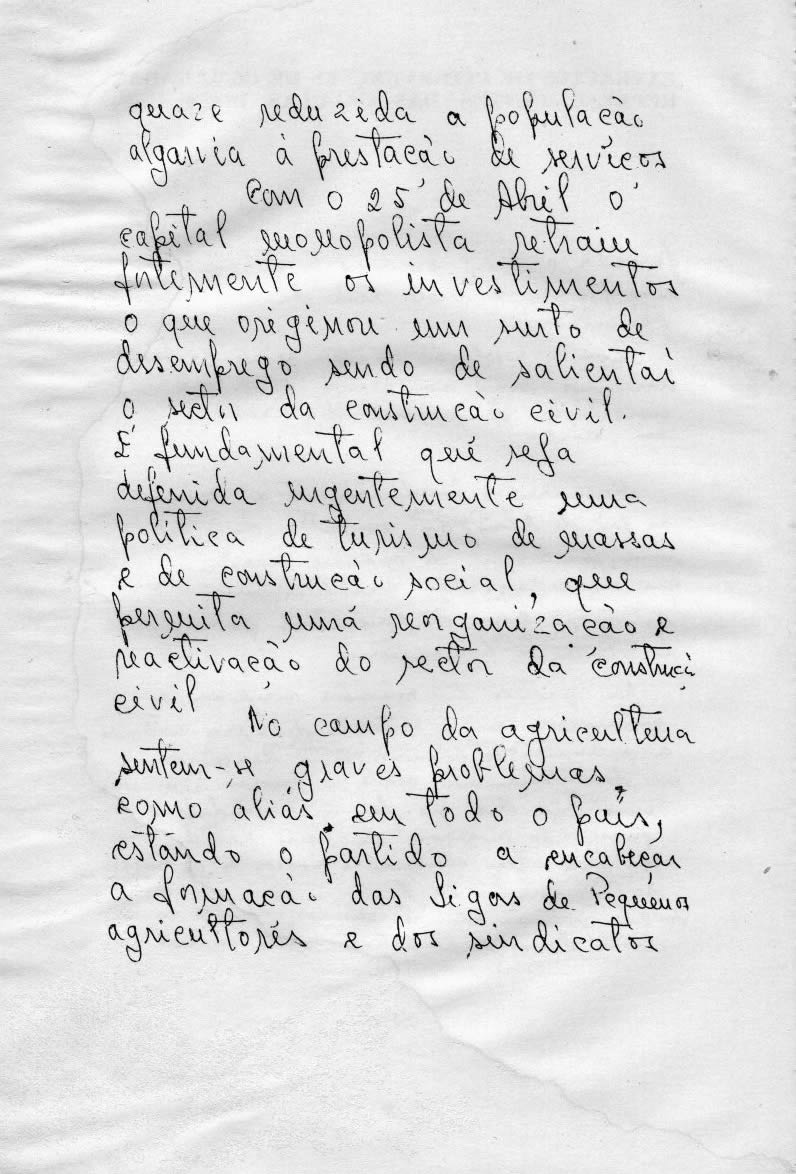 quaze reduzida a população
algarvia à prestação de serviços
Com o 25 de Abril o
capital monopolista retraiu
fortemente os investimentos
o que origenou um surto de
desemprego sendo de salientar
o sector da construção civil.
É fundamental que seja
defenida urgentemente uma
política de turismo de massas
e de construção social, que
permita uma reorganização e
reactivação do sector da construçã
civil
No campo da agricultura
sentem-se graves problemas,
como aliás, em todo o país,
estando o partido a encabeçar
a formação das Ligas de Pequenos
agricultores e dos sindicatos